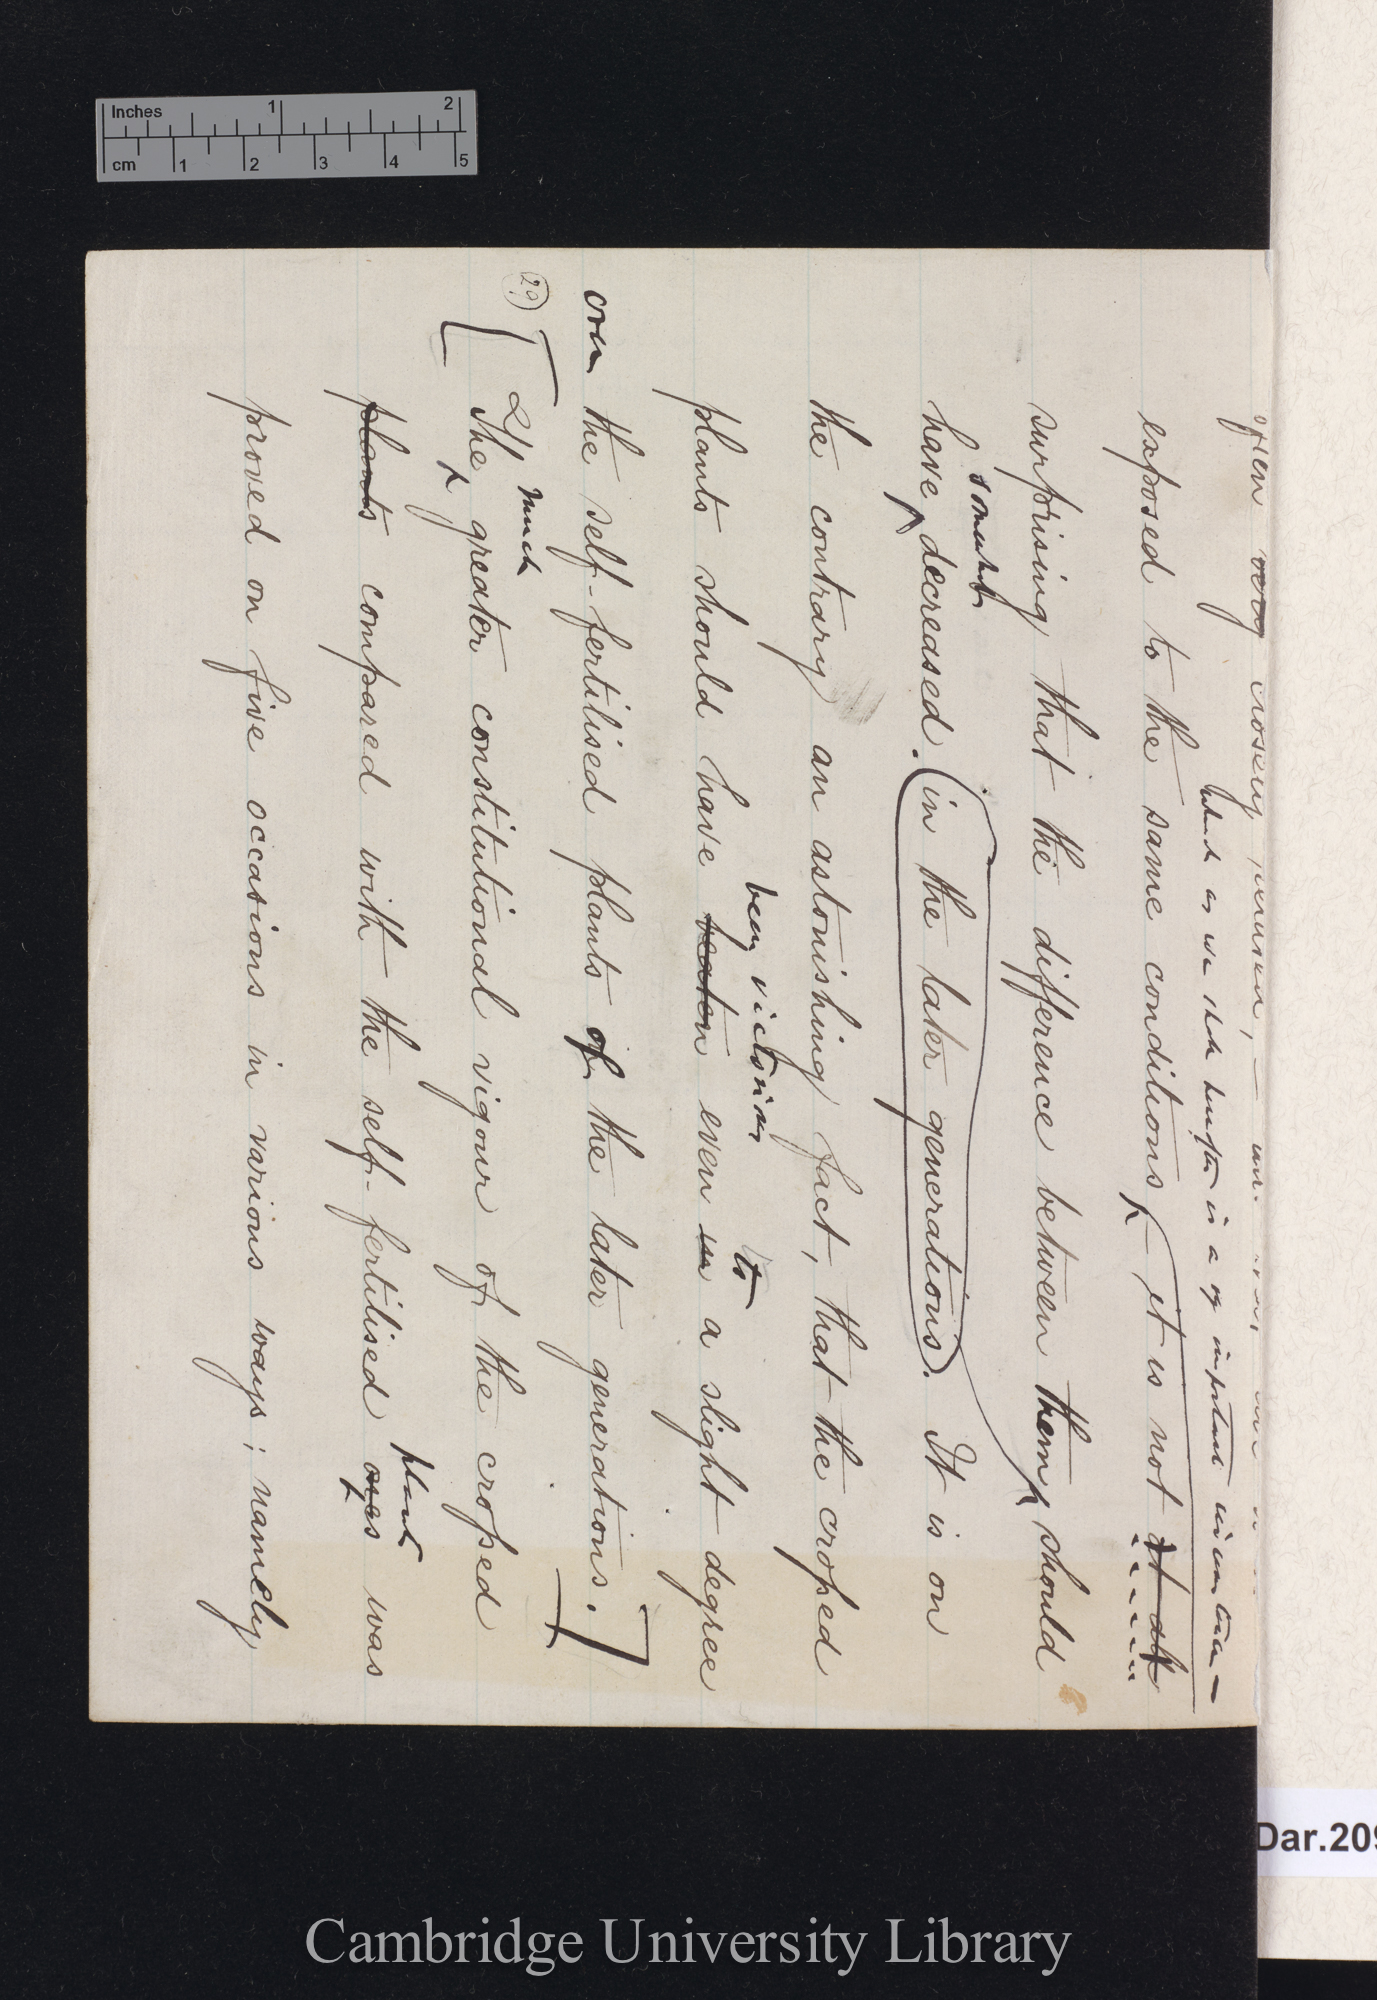 Inches 1 2
cm 1 2 3 4 5
often very closely
which as we shall hereafter is a important circumstance
exposed to the same conditions, it is not at all
surprising that the difference between them should
somewhat
have decreased. (in the later generations). It is on
the contrary an astonishing fact, that the crossed
been victorious to
plants should have beaten even in a slight degree
over the self-fertilised plants of the later generations.]
29 much
[The greater constitutional vigour of the crossed
plants
plants compared with the self-fertilised ones was
proved on five occasions in various ways; namely
Dar.209
Cambridge University Library